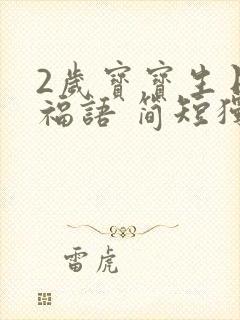 2歲寶寶生
福語 簡短獨
雷虎